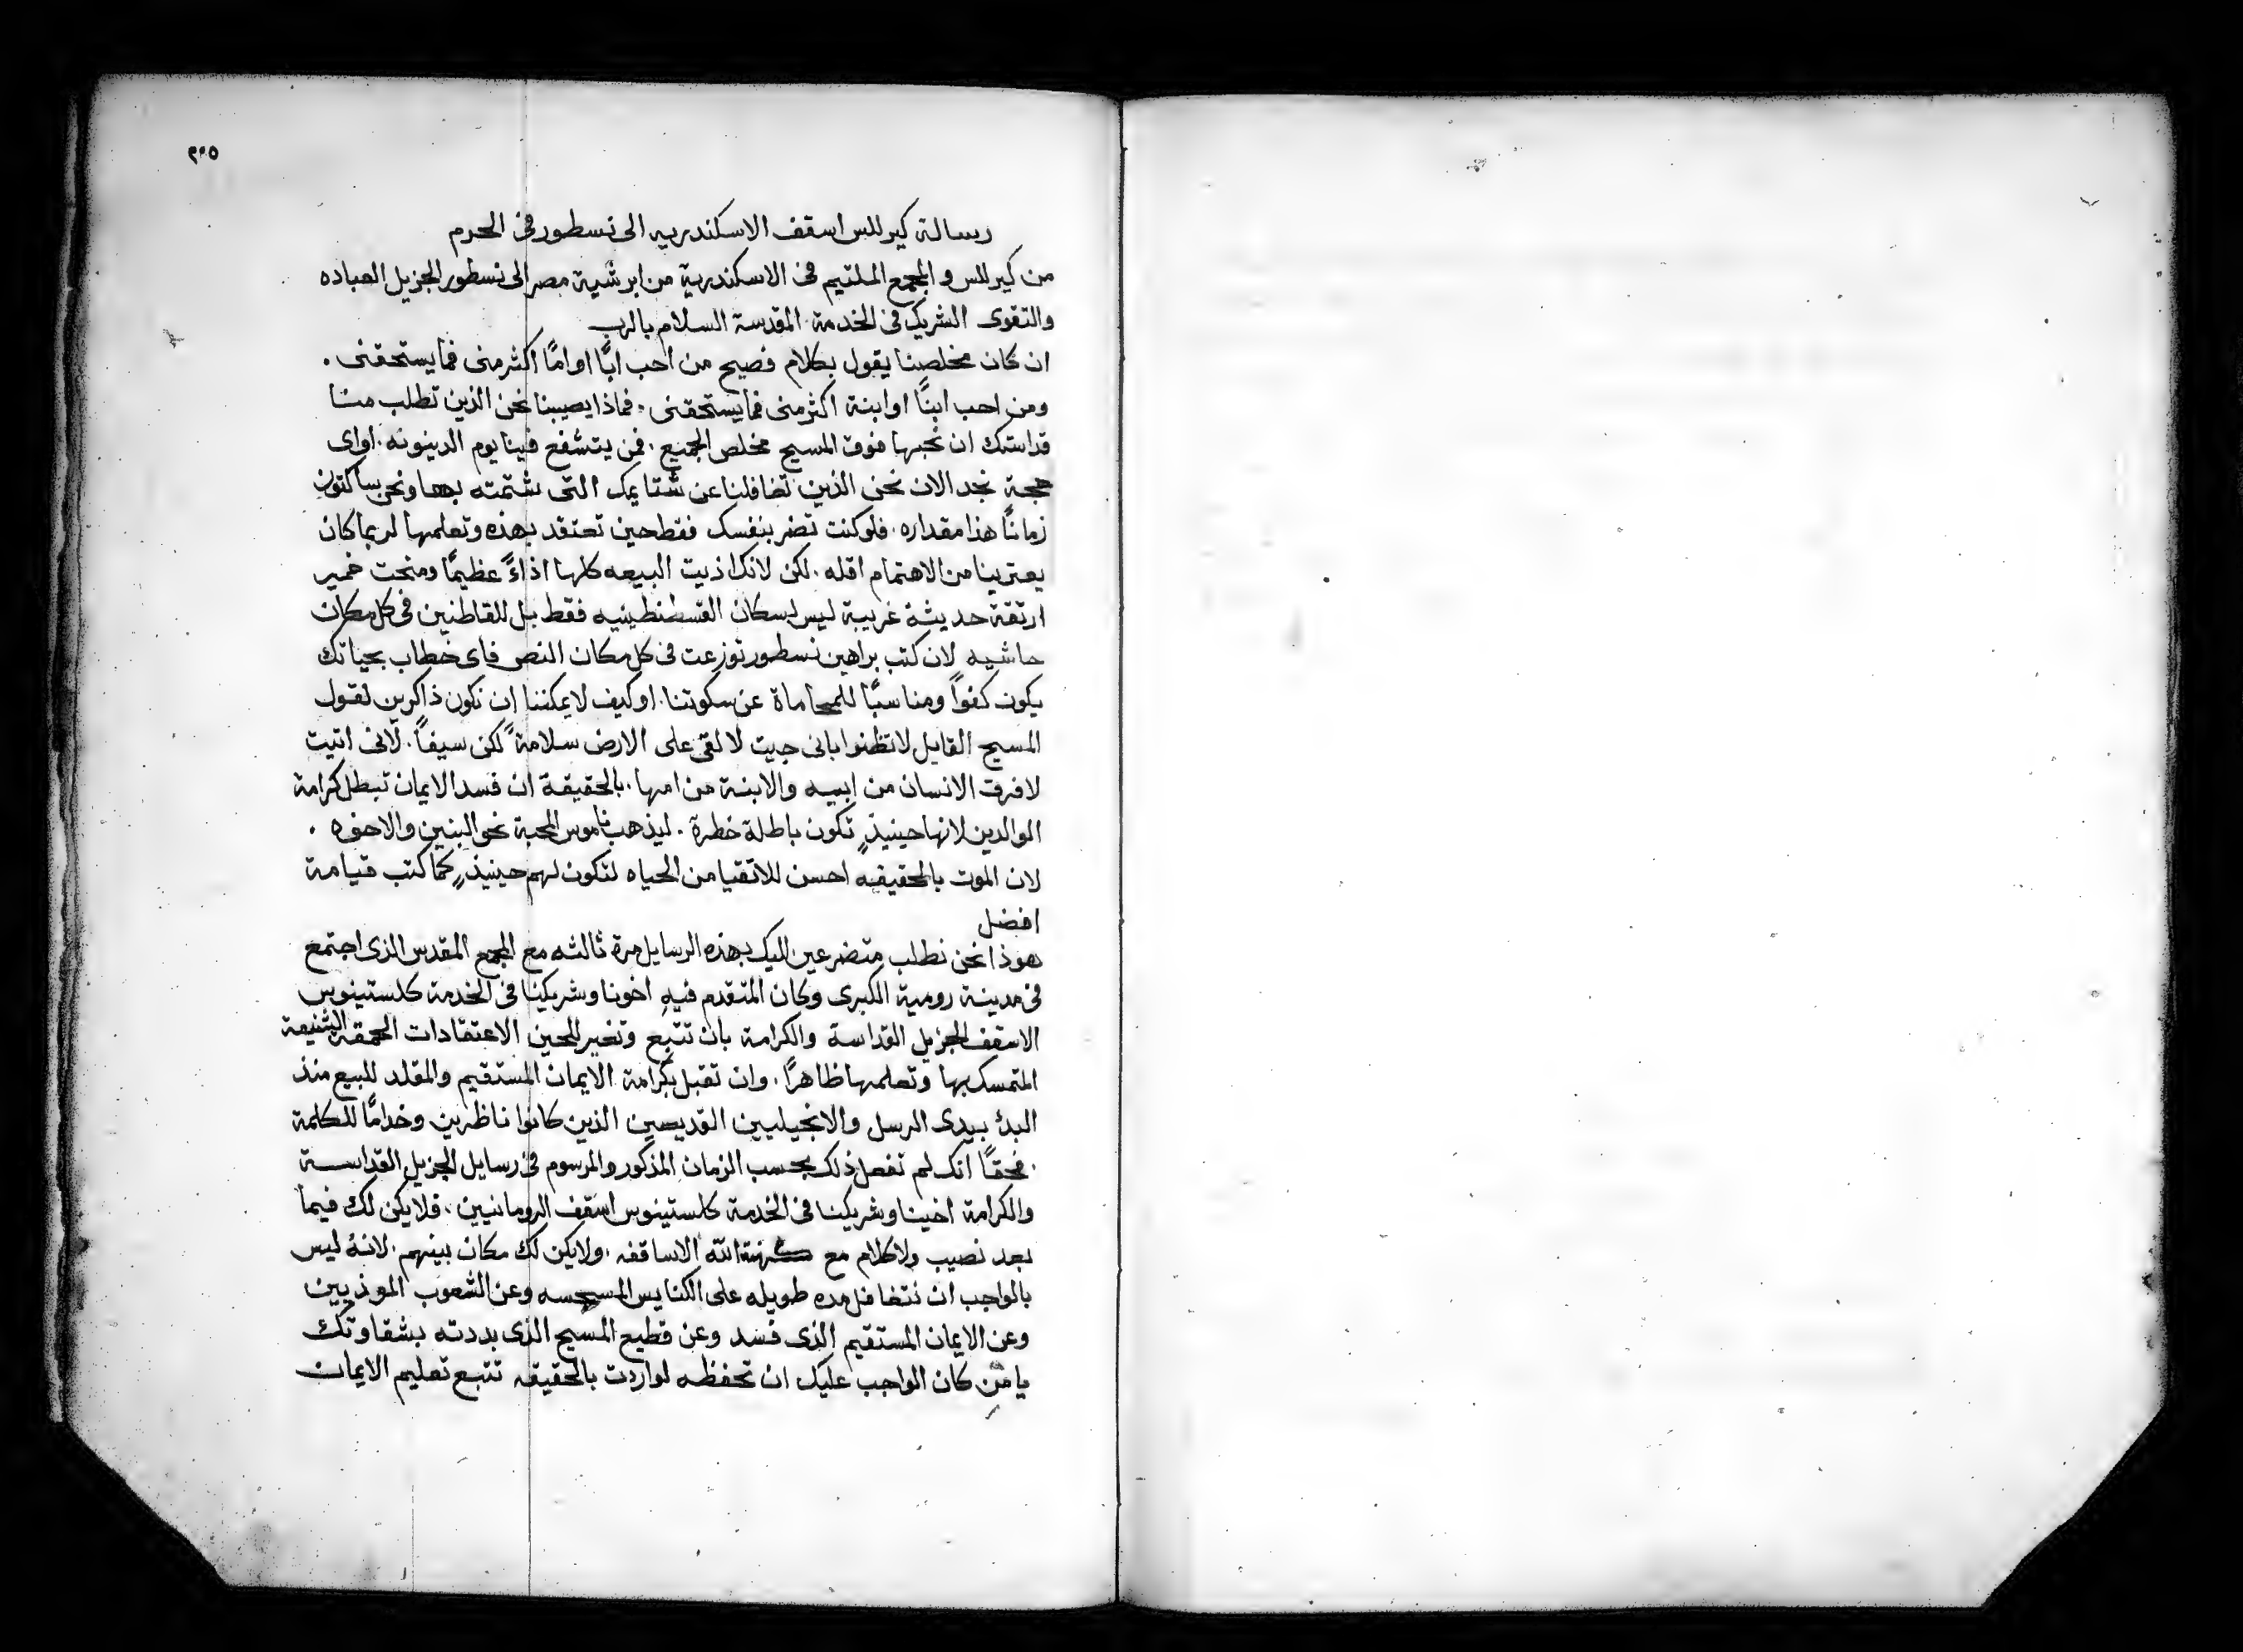 ٢٢٥
رسالة كيرللس اسقف الاسكندريه الى نسطور فى الحرم
من كيرللس و المجمع الملتيم فى الاسكندرية من ابرشية مصر الى نسطور الجزيل العباده
والتقوى الشريك فى الخدمة المقدسة السلام بالرب
ان كان مخلصنا يقول بكلام فصيح من احب ابًا او امًا اكثر منى فما يستحقنى .
ومن احب ابنًا او ابنة اكثر منى فما يستحقنى . فماذا يصيبنا نحن الذين تطلب منا
قداستك ان نحبها فوق المسيح مخلص الجميع . فمن يتشفع فينا يوم الدينونه . او اى
حجة نجد الان نحن الذين تغافلنا عن شتايمك التى شتمته بها ونحن ساكتون
زمانًا هذا مقداره . فلو كنت تضر بنفسك فقط حين تعتقد بهذه وتعلمها لربما كان
يعترينا من الاهتمام اقله . لكن لانك اذيت البيعه كلها اذاءً عظيمًا ومنحت خمير
ارتقة حديثة غريبة ليس لسكان القسطنطينيه فقط بل للقاطنين فى كل مكان
حاشيه لان كتب براهين نسطور توزعت فى كل مكان النص فاى خطاب بحياتك
يكون كفواً ومناسبًا للمحاماة عن سكوتنا . او كيف لا يمكننا ان نكون ذاكرين لقول
المسيح القايل لا تظنوا بانى جيت لالقى على الارض سلامةً لكن سيفاً . لانى اتيت
لافرق الانسان من ابيه والابنة من امها . بالحقيقة ان فسد الايمان تبطل كرامة
الوالدين لانها حينيذٍ تكون باطلة خطرة . ليذهب ناموس المحبة نحو البنين والاخوه .
لان الموت بالحقيقيه احسن للاتقيا من الحياه لتكون لهم حينيذٍ كما كتب قيامة
افضل
هوذا نحن نطلب متضرعين اليك بهذه الرسايل مرة ثالثه مع المجمع المقدس الذى اجتمع
فى مدينة رومية الكبرى وكان المتقدم فيهِ اخونا وشريكنا فى الخدمة كلستينوس
الاسقف الجزيل القداسة والكرامة بان تتبع وتغير للحين الاعتقادات الحمقة الشنيعة
المتمسك بها وتعلمها ظاهرًا . وان تقبل بكرامة الايمان المستقيم والمقلد للبيع منذ
البدء بيدى الرسل والانجيليين القديسين الذين كانوا ناظرين وخدامًا للكلمة
. فحقًا انك لم تفعل ذلك بحسب الزمان المذكور والمرسوم فى رسايل الجزيل القداسة
والكرامة اخينا وشريكنا فى الخدمة كلستينوس اسقف الرومانيين . فلا يكن لك فيما
بعد نصيب ولا كلام مع كهنة الله الاساقفه . ولا يكن لك مكان بينهم . لانهُ ليس
بالواجب ان نتغافل مده طويله على الكنايس المسيحيه وعن الشعوب الموذيين
وعن الايمان المستقيم الذى فسد وعن قطيع المسيح الذى بددته بشقاوتك
يا من كان الواجب عليك ان تحفظه لو اردت بالحقيقه تتبع تعليم الايمان